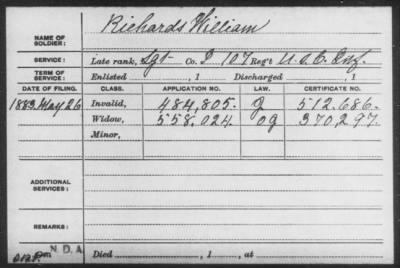 Richards William
NAME OF SOLDIER:
SERVICE: Late rank, Sgt Co. D 107 Reg't U.S.C. Inf.
TERM OF SERVICE: Enlisted , 1 Discharged , 1
DATE OF FILING. CLASS. APPLICATION NO. LAW. CERTIFICATE NO.
1883. May 26 Invalid, 484,805. 512.686.
Widow, 558,024 O G 370,297.
Minor,
ADDITIONAL SERVICES:
REMARKS:
N.D.A. Died , 1 , at